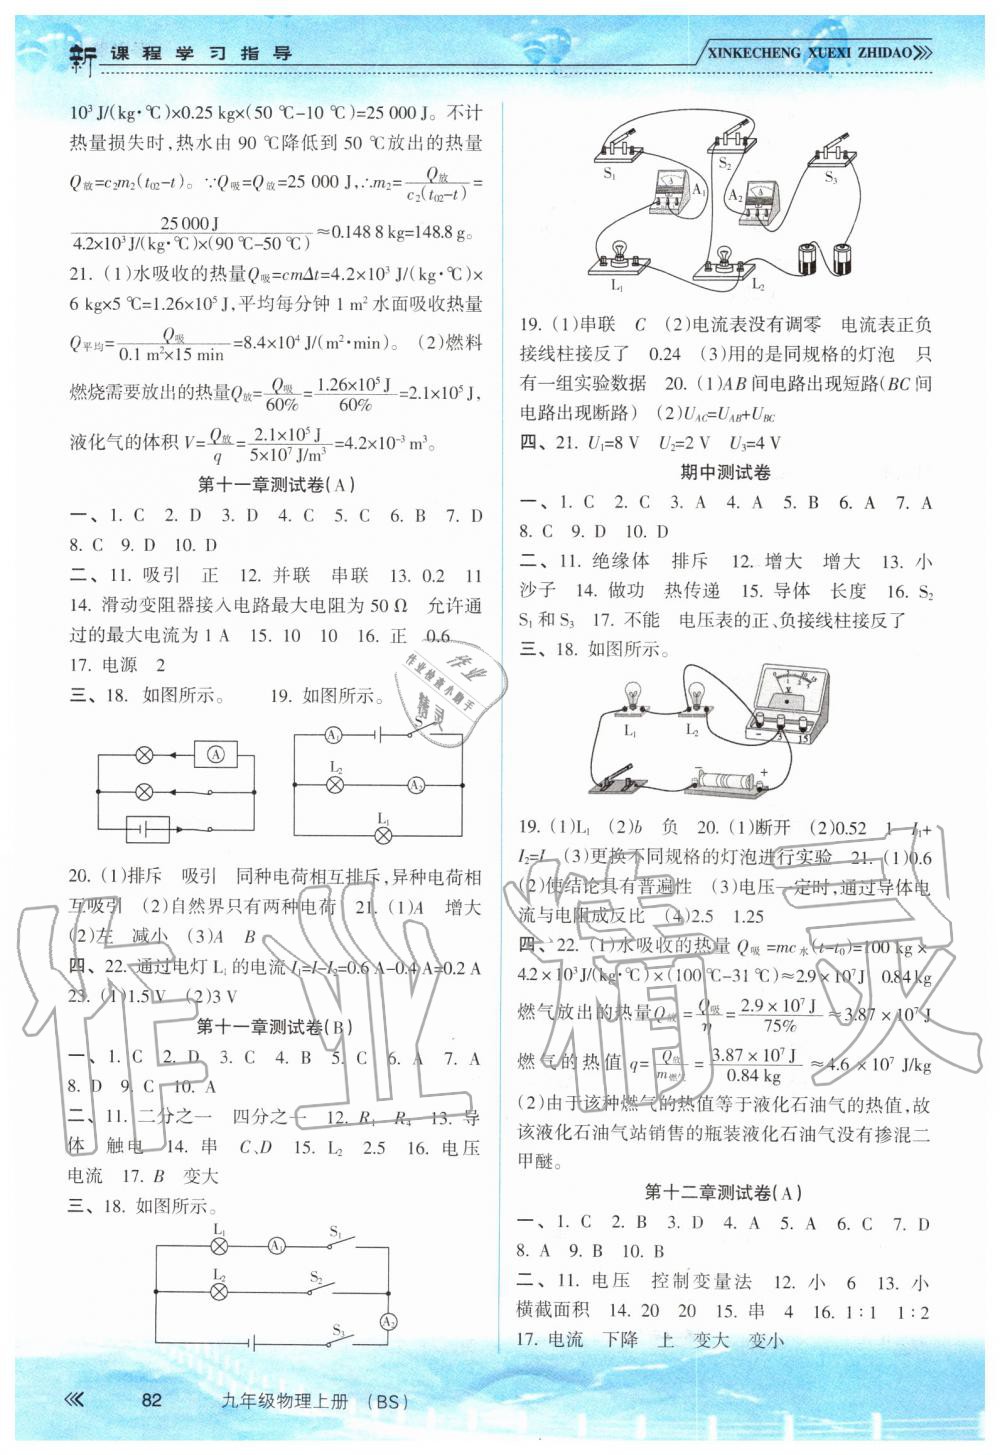 新课程学习指导
XINKECHENG XUEXI ZHIDAO
10³ J/(kg·℃)×0.25 kg×(50 ℃-10 ℃)=25 000 J。不计
热量损失时,热水由 90 ℃降低到 50 ℃放出的热量
Q放=c₂m₂(t₀₂-t)。∵Q吸=Q放=25 000 J,∴m₂=Q放/c₂(t₀₂-t)=
25 000 J/4.2×10³ J/(kg·℃)×(90 ℃-50 ℃)≈0.148 8 kg=148.8 g。
21. (1)水吸收的热量Q吸=cmΔt=4.2×10³ J/(kg·℃)×
6 kg×5 ℃=1.26×10⁵ J,平均每分钟 1 m² 水面吸收热量
Q平均=Q吸/0.1 m²×15 min=8.4×10⁴ J/(m²·min)。 (2)燃料
燃烧需要放出的热量Q放=Q吸/60%=1.26×10⁵ J/60%=2.1×10⁵ J,
液化气的体积 V=Q放/q=2.1×10⁵ J/5×10⁷ J/m³=4.2×10⁻³ m³。
第十一章测试卷(A)
一、1. C 2. D 3. D 4. C 5. C 6. B 7. D
8. C 9. D 10. D
二、11. 吸引 正 12. 并联 串联 13. 0.2 11
14. 滑动变阻器接入电路最大电阻为 50 Ω 允许通
过的最大电流为 1 A 15. 10 10 16. 正 0.6
17. 电源 2
三、18. 如图所示。 19. 如图所示。
A
A₁ S
L₂ A₂
L₁
20. (1)排斥 吸引 同种电荷相互排斥,异种电荷相
互吸引 (2)自然界只有两种电荷 21. (1)A 增大
(2)左 减小 (3)A B
四、22. 通过电灯 L₁ 的电流 I₁=I-I₂=0.6 A-0.4 A=0.2 A
23. (1)1.5 V (2)3 V
第十一章测试卷(B)
一、1. C 2. D 3. C 4. B 5. C 6. A 7. A
8. D 9. C 10. A
二、11. 二分之一 四分之一 12. R₁ R₄ 13. 导
体 触电 14. 串 C、D 15. L₂ 2.5 16. 电压
电流 17. B 变大
三、18. 如图所示。
L₁ A₁ S₁
L₂ S₂
A₂
S₃
S₁ A₁ S₂ A₂ S₃
L₁ L₂
19. (1)串联 C (2)电流表没有调零 电流表正负
接线柱接反了 0.24 (3)用的是同规格的灯泡 只
有一组实验数据 20. (1)AB 间电路出现短路(BC 间
电路出现断路) (2)U_AC=U_AB+U_BC
四、21. U₁=8 V U₂=2 V U₃=4 V
期中测试卷
一、1. C 2. C 3. A 4. A 5. B 6. A 7. A
8. C 9. D 10. D
二、11. 绝缘体 排斥 12. 增大 增大 13. 小
沙子 14. 做功 热传递 15. 导体 长度 16. S₂
S₁和S₃ 17. 不能 电压表的正、负接线柱接反了
三、18. 如图所示。
V
- 3 15
L₁ L₂
- +
19. (1)L₁ (2)b 负 20. (1)断开 (2)0.52 1 I₁+
I₂=I (3)更换不同规格的灯泡进行实验 21. (1)0.6
(2)使结论具有普遍性 (3)电压一定时,通过导体电
流与电阻成反比 (4)2.5 1.25
四、22. (1)水吸收的热量 Q吸=mc水(t-t₀)=100 kg×
4.2×10³J/(kg·℃)×(100 ℃-31 ℃)≈2.9×10⁷J 0.84 kg
燃气放出的热量Q放=Q吸/η=2.9×10⁷ J/75%≈3.87×10⁷ J
燃气的热值 q=Q放/m燃气=3.87×10⁷ J/0.84 kg≈4.6×10⁷ J/kg
(2)由于该种燃气的热值等于液化石油气的热值,故
该液化石油气站销售的瓶装液化石油气没有掺混二
甲醚。
第十二章测试卷(A)
一、1. C 2. B 3. D 4. A 5. A 6. C 7. D
8. A 9. B 10. B
二、11. 电压 控制变量法 12. 小 6 13. 小
横截面积 14. 20 20 15. 串 4 16. 1∶1 1∶2
17. 电流 下降 上 变大 变小
82 九年级物理上册 (BS)
作业精灵
作业
作业检查小助手
精灵